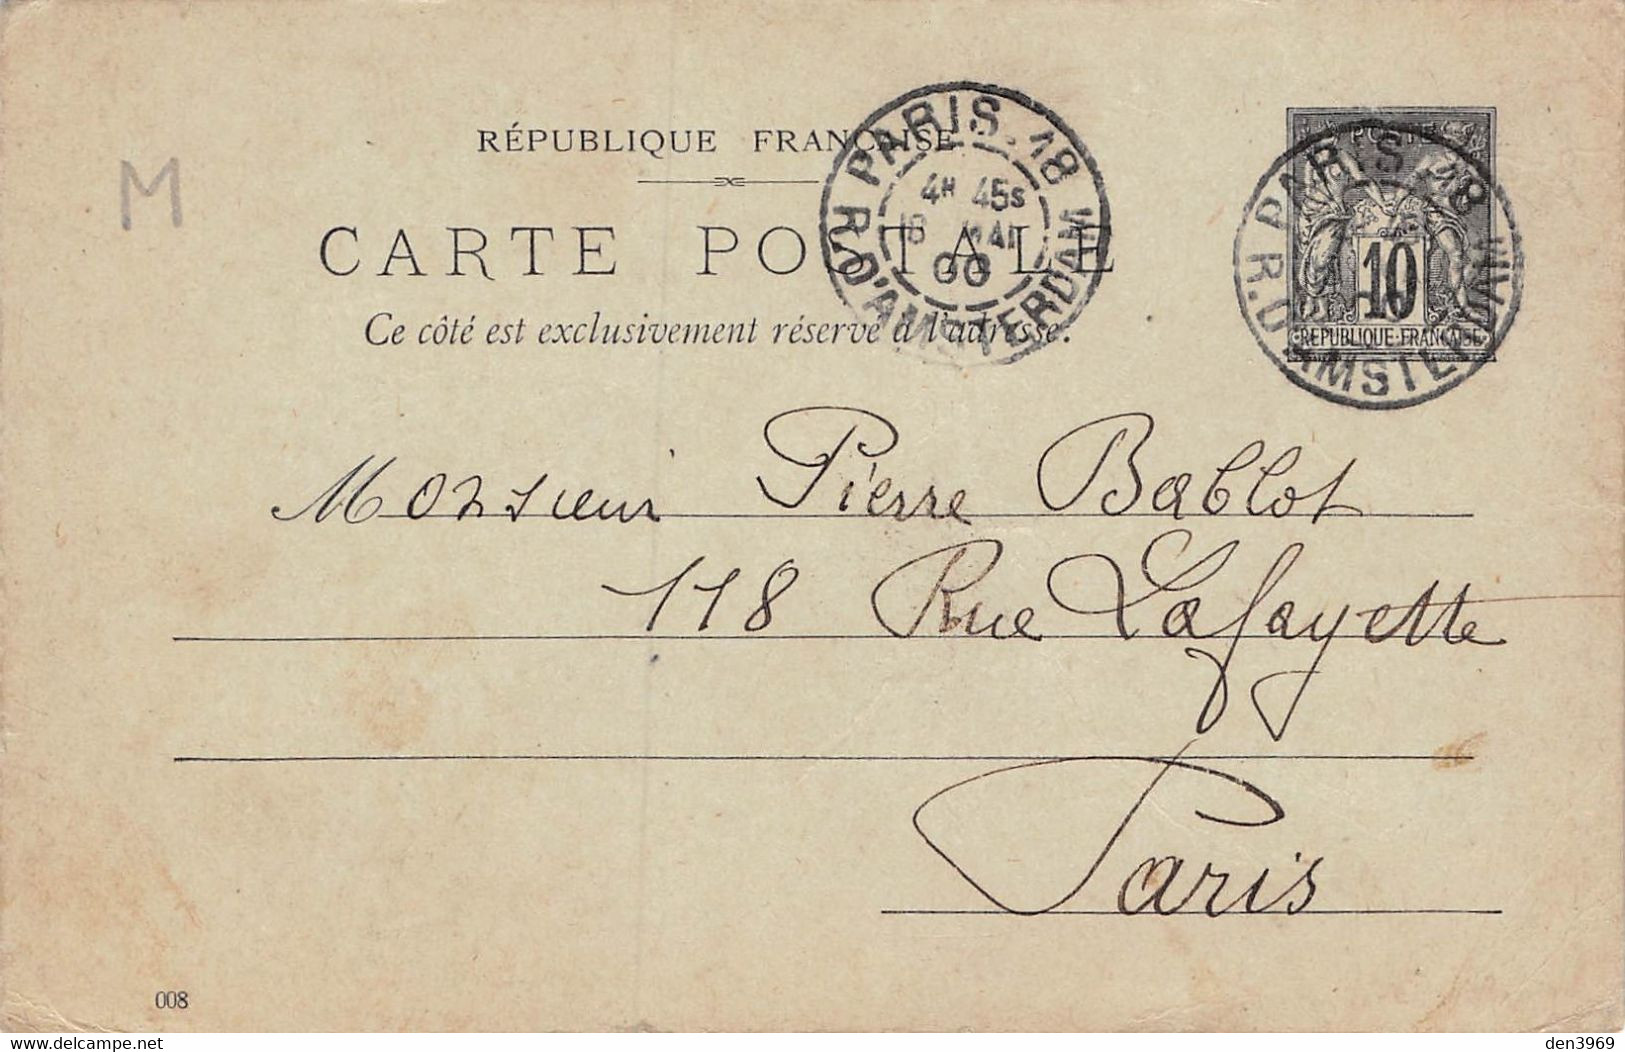 M
RÉPUBLIQUE FRANÇAISE
CARTE POSTALE
Ce côté est exclusivement réservé à l'adresse.
PARIS. 18
4H 45S
MAI
00
R. D'AMSTERDAM
POSTE
10
REPUBLIQUE·FRANÇAISE
PARIS 18
R. D'AMSTERDAM
Monsieur Pierre Bablot
118 Rue Lafayette
Paris
008
www.delcampe.net
den3969